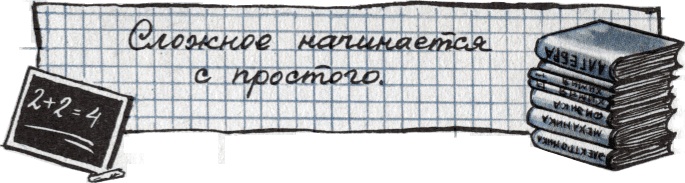 Сложное начинается
с простого.
2+2=4
АЛГЕБРА
ХИМИЯ
ФИЗИКА
МЕХАНИКА
ЭЛЕКТРОНИКА